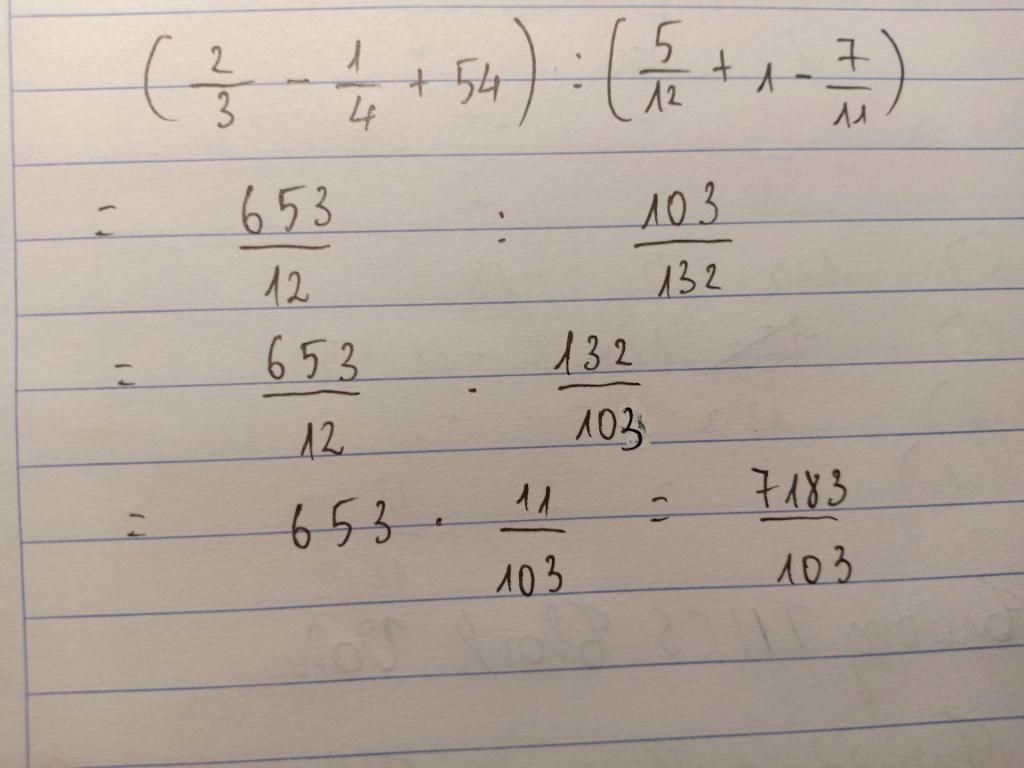 (2/3 - 1/4 + 54) : (5/12 + 1 - 7/11)
= 653/12 : 103/132
= 653/12 . 132/103
= 653 . 11/103 = 7183/103